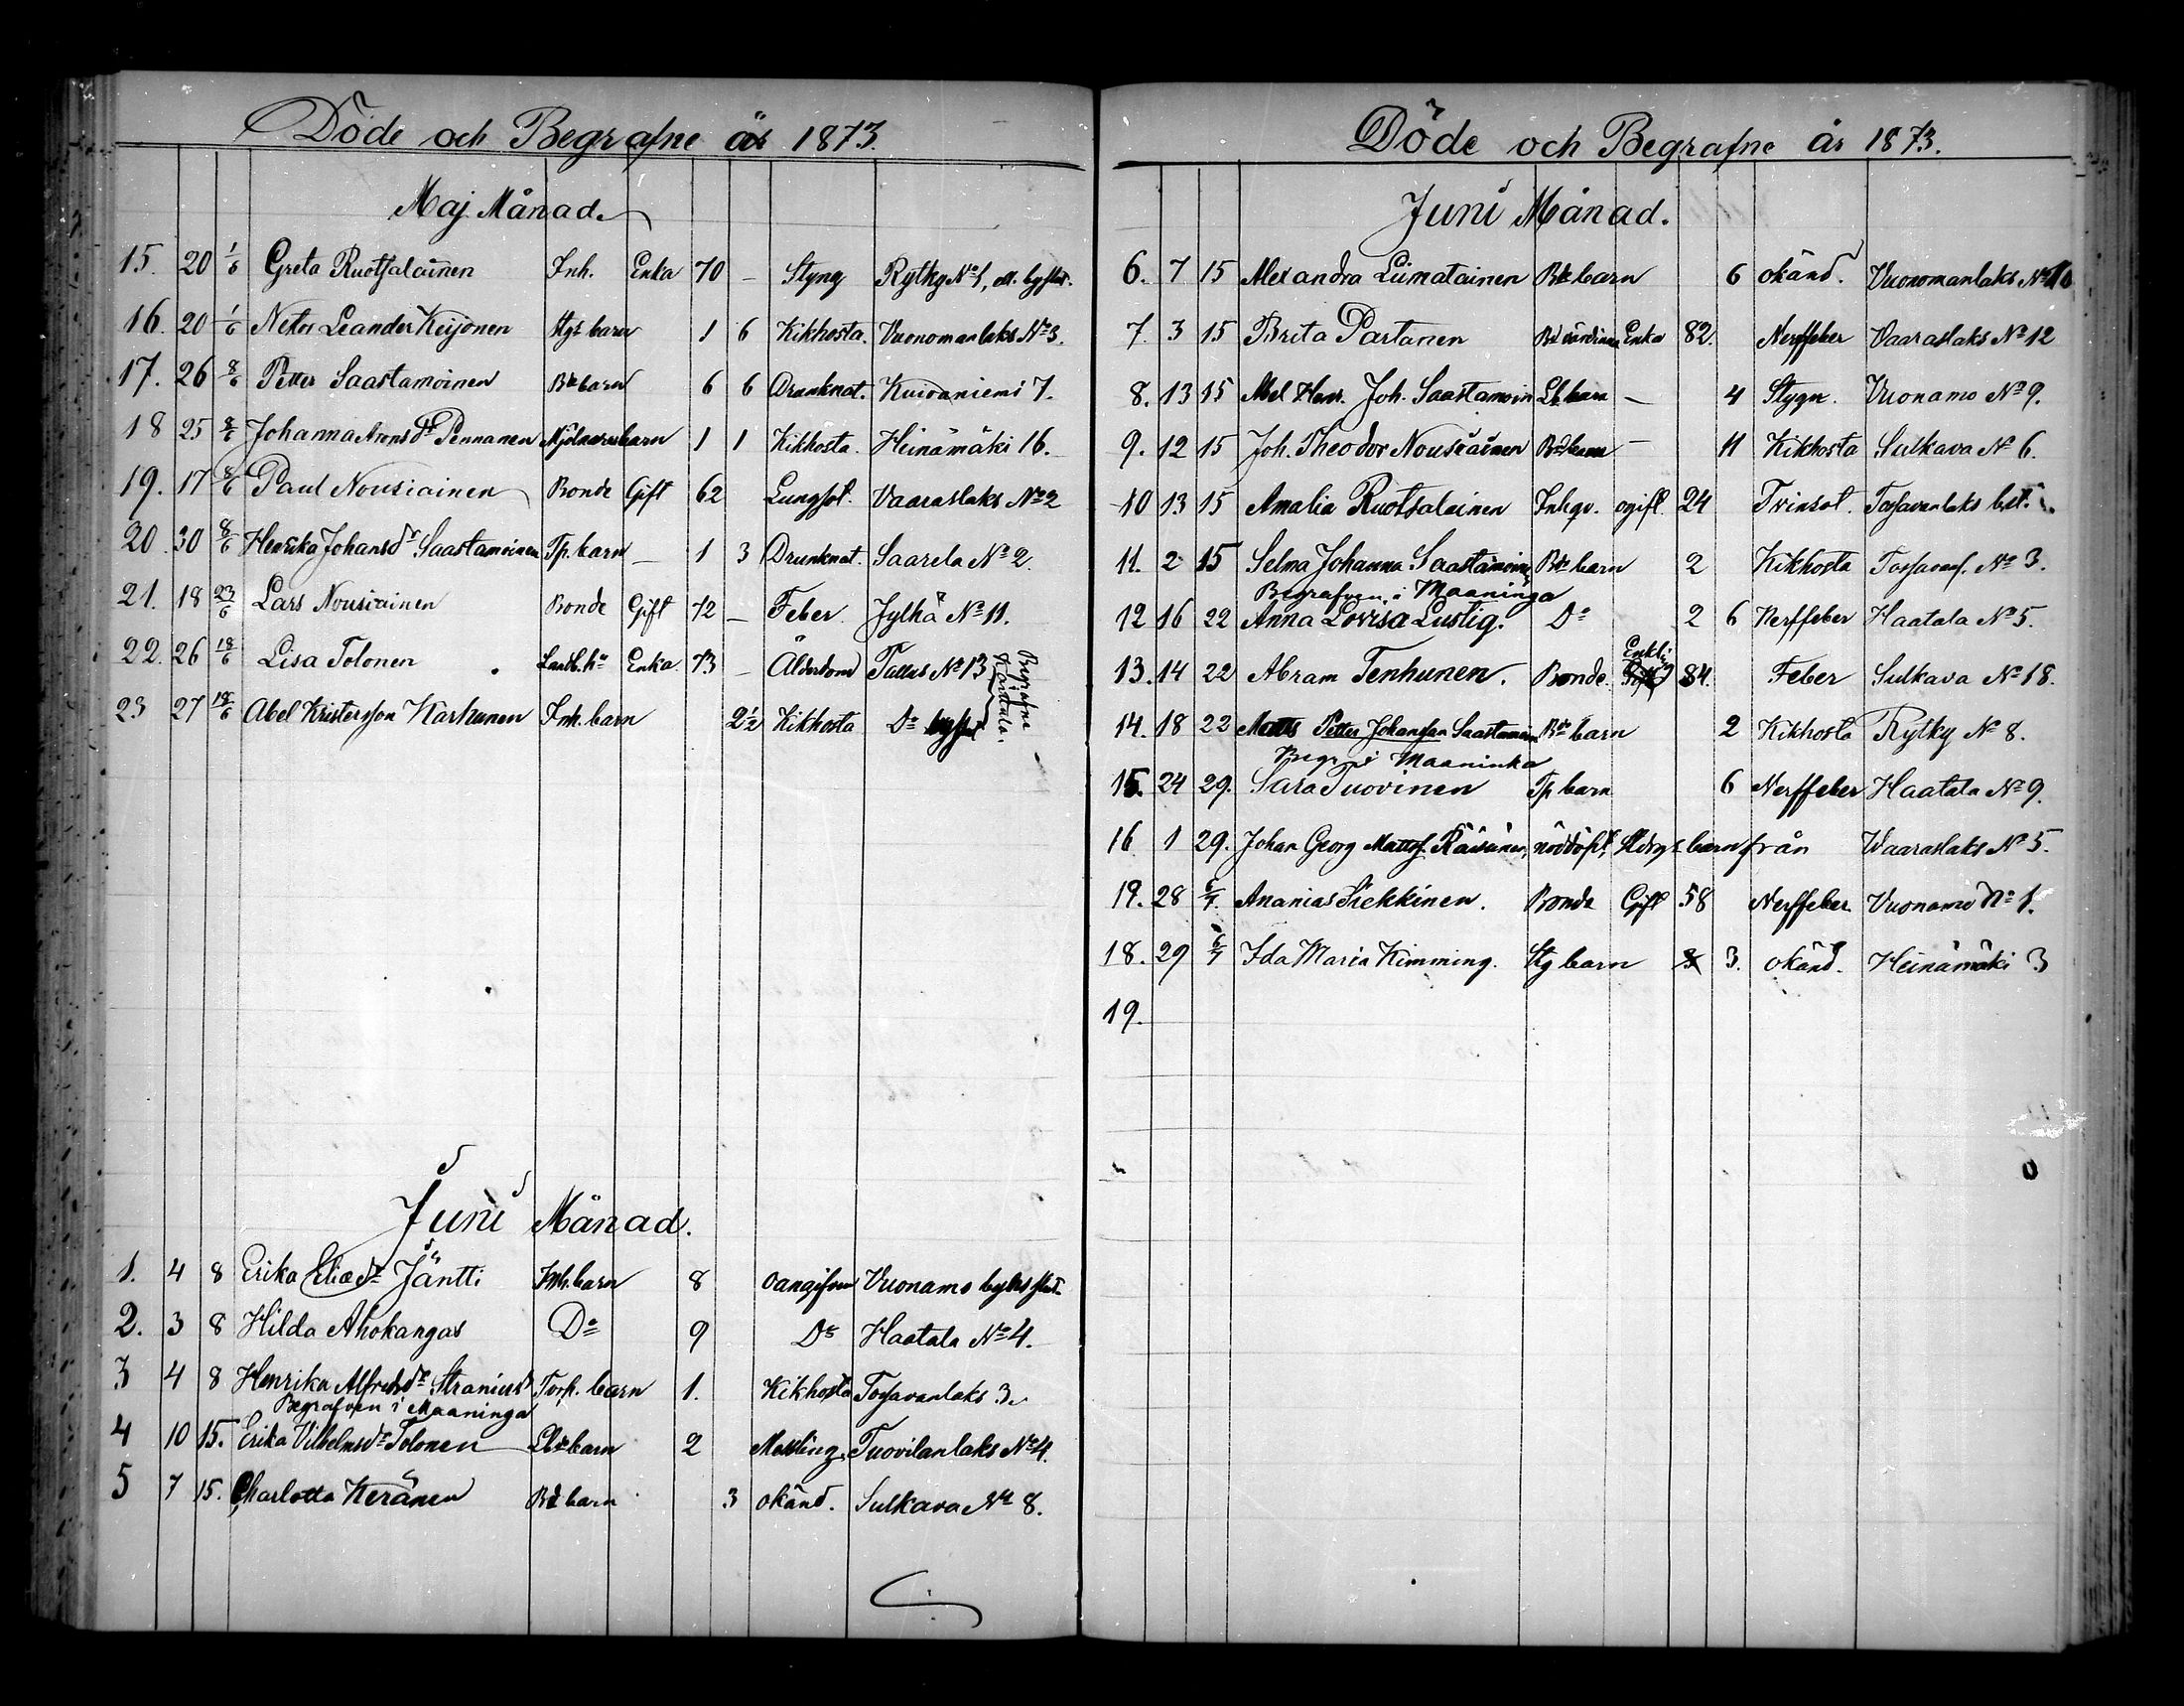 Döde och Begrafne år 1873.
Maj Månad.
15. 20 1/6 Greta Ruotsalainen Inh. Enka 70 - Styng Rytky No 1,
16. 20 1/6 Leander Keijonen barn 1 6 Kikhosta. Vuonomanlaks No 3.
17. 26 8/6 Petter Saastamoinen Bde barn 6 6 Drunknat. Kuivaniemi 7.
18 25 8/6 Johanna Aronsdr Pennanen Mjölnarebarn 1 1 Kikhosta. Heinämäki 16.
19. 17 8/6 Paul Nousiainen Bonde Gift 62 Lungsot. Vaaraslaks No 2
20. 30 8/6 Henrika Johansdr Saastamoinen Tp. barn - 1 3 Drunknat. Saarela No 2.
21. 18 23/6 Lars Nousiainen Bonde Gift 72 - Feber. Jylhä No 11.
22. 26 18/6 Lisa Tolonen Enka 73 - Ålderdom Tallus No 13
23 27 18/6 Abel Kristersson Karhunen Inh. barn 2 1/2 Kikhosta Do
Begrafne i Karttula.
Juni Månad.
1. 4 8 Erika Eliædr Jäntti Inh. barn 8 oangifven Vuonamo
2. 3 8 Hilda Ahokangas Do 9 Do Haatala No 4.
3 4 8 Henrika Alfredsdr Stranius Torp. barn 1. Kikhosta Tossavanlaks 3.
Begrafven i Maaninga
4 10 15. Erika Vilhelmsdr Tolonen Lbde barn 2 Messling. Tuovilanlaks No 4.
5 7 15. Charlotta Keränen Bde barn 3 okänd. Sulkava No 8.
Döde och Begrafne år 1873.
Juni Månad.
6. 7 15 Alexandra Liimatainen Bde barn 6 okänd. Vuonomanlaks No
7. 3 15 Brita Partanen Bdevärdinna Enka 82. Nerffeber Vaaraslaks No 12
8. 13 15 Abel Henr. Joh. Saastamoin Lb. barn - 4 Stygn. Vuonamo No 9.
9. 12 15 Joh. Theodor Nousiainen Bde barn - 11 Kikhosta Sulkava No 6.
10 13 15 Amalia Ruotsalainen Inhqv. ogift. 24 Tvinsot. Tossavanlaks bst.
11. 2 15 Selma Johanna Saastamoin Bde barn 2 Kikhosta Tossavanl. No 3.
Begrafven i Maaninga
12 16 22 Anna Lovisa Lustig. Do 2 6 Nerffeber Haatala No 5.
13. 14 22 Abram Tenhunen. Bonde. Enkl. 84. Feber Sulkava No 18.
14. 18 22 Petter Johansson Saastamoin Bde barn 2 Kikhosta Rytky No 8.
Begr. i Maaninka
15. 24 29. Sara Tuovinen Tp barn 6 Nerffeber Haatala No 9.
16 1 29. Johan Georg Mattss. Räisänen, nöddöpt, barn från Waaraslaks No 5.
19. 28 6/7. Ananias Tiekkinen. Bonde Gift 58 Nerffeber Vuonamo No 1.
18. 29 6/7 Ida Maria Kimming. Stg barn 3. okänd. Heinämäki 3
19.